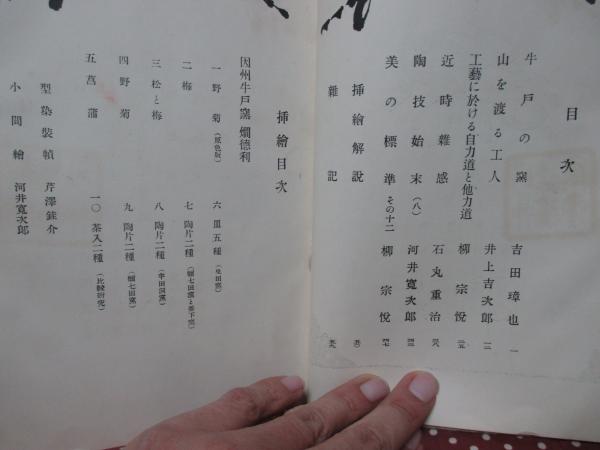 目次
牛戸の窯 吉田璋也 一
山を渡る工人 井上吉次郎
工藝に於ける自力道と他力道 柳宗悦
近時雑感 石丸重治
陶技始末(八) 河井寛次郎
美の標準 その十二 柳宗悦
挿繪解説
雜記
挿繪目次
因州牛戸窯 燗德利
一 野菊 (原色版)
二 梅
三 松と梅
四 野菊
五 菖蒲
六 皿五種
七 陶片二種
八 陶片二種
九 陶片二種
一〇 茶入二種 (比較研究)
型染装幀 芹澤銈介
小間繪 河井寛次郎